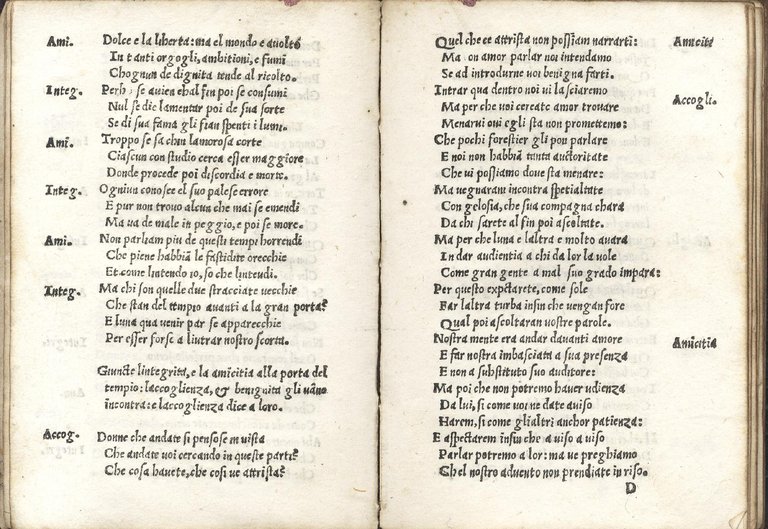 Ami. Dolce e la liberta: ma el mondo e auolto
In tanti orgogli, ambitioni, e fumi
Chognun de dignita tende al ricolto.
Integ. Perho se auien chal fin poi se consumi
Nul se die lamentar poi de sua sorte
Se di sua fama gli sian spenti i lumi.
Ami. Troppo se sa chin lamorosa corte
Ciascun con studio cerca esser maggiore
Donde procede poi discordia e morte.
Integ. Ogniun conosce el suo palese errore
E pur non trouo alcun che mai se emendi
Ma ua de male in peggio, e poi se more.
Ami. Non parliam piu de questi tempi horrendi
Che piene habbiã le fastidite orecchie
Et come lintendo io, so che lintendi.
Integ. Ma chi son quelle due stracciate uecchie
Che stan del tempio auanti a la gran porta?
E luna qua uenir par se apparecchie
Per esser forse a liutrar nostro scorta.
Giuncte lintegrita, e la amicitia alla porta del
tempio: laccoglienza, & benignita gli uãno
incontra: e laccoglienza dice a loro.
Accog. Donne che andate si pensose in uista
Che andate uoi cercando in queste parti?
Che cosa hauete, che cosi ue attrista?
Quel che ce attrista non possiam narrarti: Amicitia
Ma con amor parlar noi intendamo
Se ad introdurne uoi benigna farti.
Intrar qua dentro noi ui lasciaremo Accogli.
Ma per che uoi cercate amor trouare
Menarui oui egli sta non promettemo:
Che pochi forestier gli pon parlare
E noi non habbiã tanta auctoritate
Che ui possiamo doue sta menare:
Ma uegnaram incontra spetialitate
Con gelosia, che sua compagna chara
Da chi sarete al fin poi ascoltate.
Ma per che luna e laltra e molto auara
In dar audientia a chi da lor la uole
Come gran gente a mal suo grado impara:
Per questo expctarete, come sole
Far laltra turba insin che uengan fore
Qual poi ascoltaran uostre parole.
Nostra mente era andar dauanti amore Amicitia
E far nostra imbasciata a sua presenza
E non a substituto suo auditore:
Ma poi che non potremo hauer udienza
Da lui, si come uoi ne date auiso
Harem, si come gli altri anchor patienza:
E aspectarem insin che a uiso a uiso
Parlar potremo a lor: ma ue preghiamo
Chel nostro aduento non prendiate in riso.
D